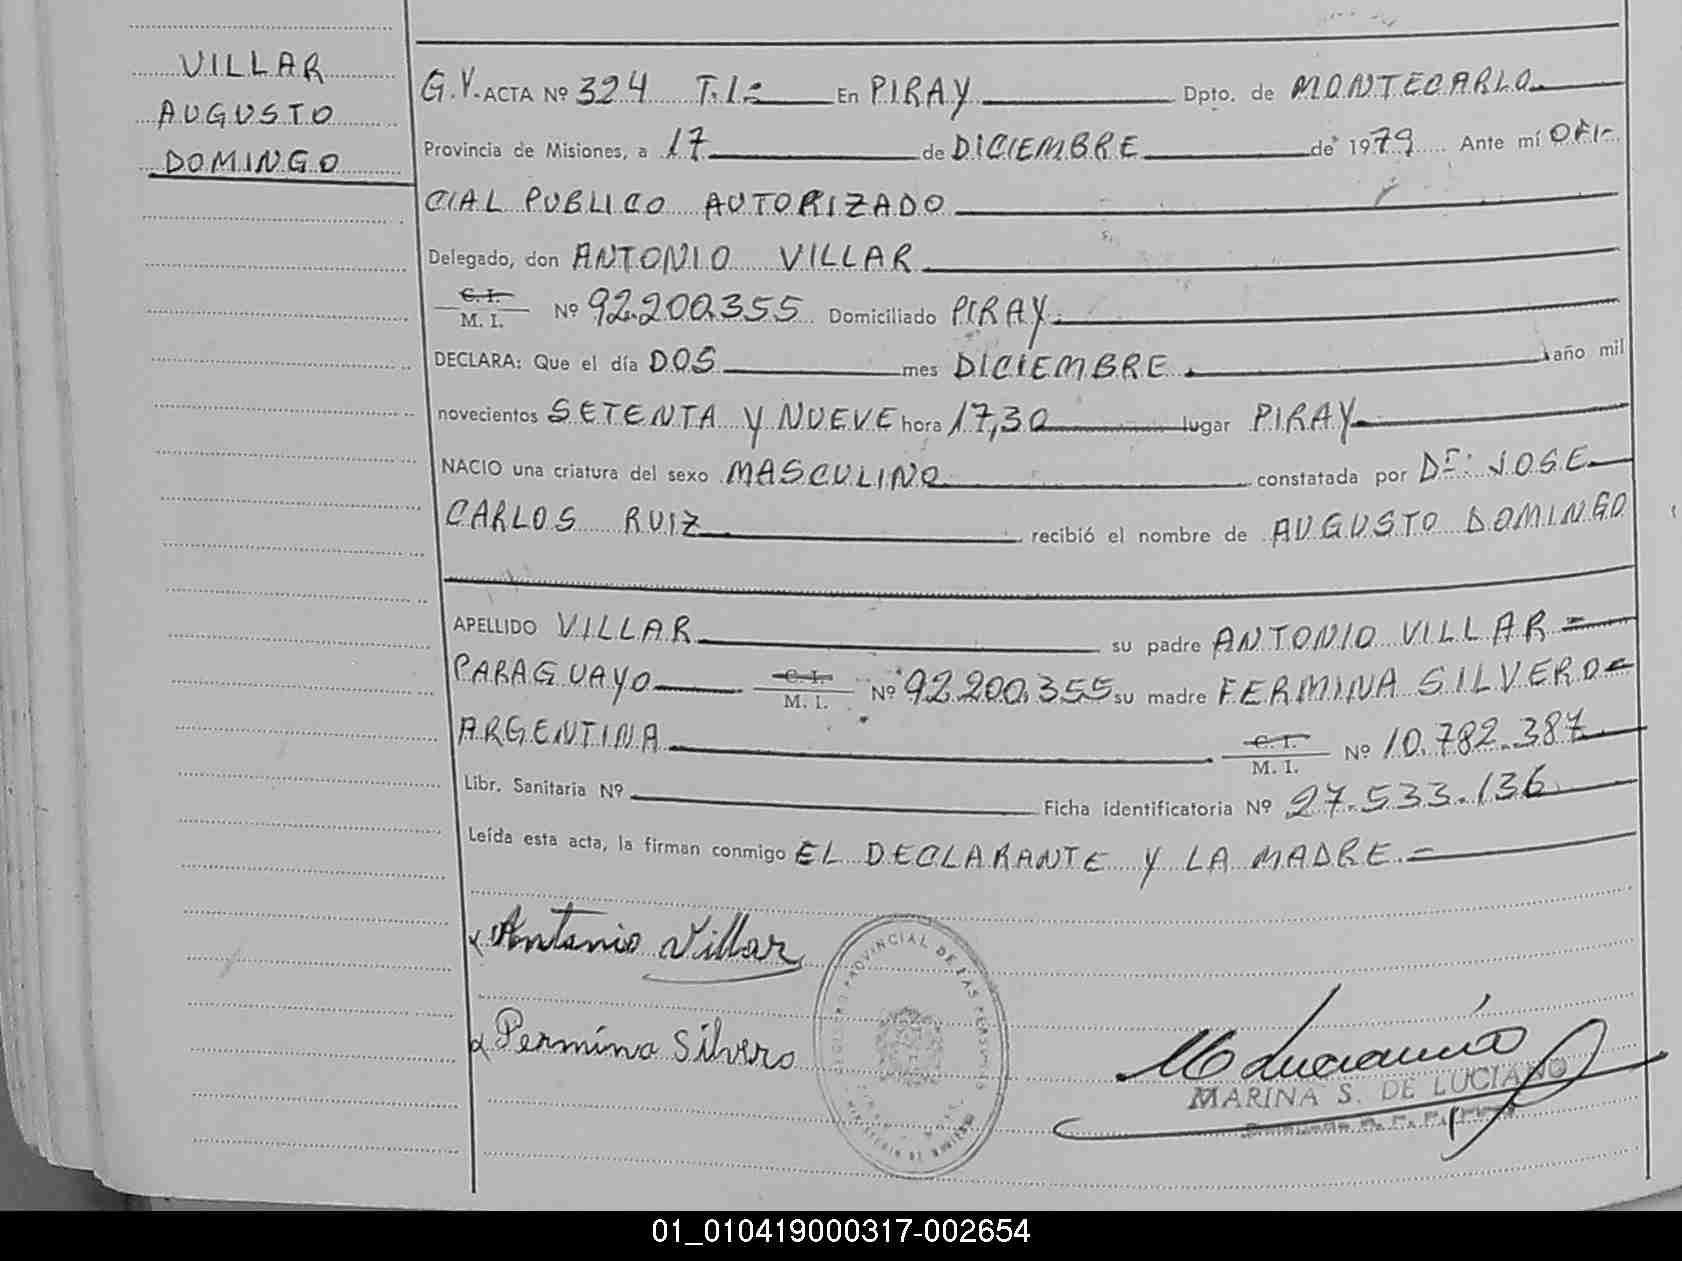 VILLAR
AUGUSTO
DOMINGO
G.V. ACTA Nº 324 T.1.= En PIRAY Dpto. de MONTECARLO
Provincia de Misiones, a 17 de DICIEMBRE de 1979 Ante mí OFI-
CIAL PUBLICO AUTORIZADO
Delegado, don ANTONIO VILLAR
C. I. / M. I. Nº 92.200.355 Domiciliado PIRAY
DECLARA: Que el día DOS mes DICIEMBRE año mil
novecientos SETENTA Y NUEVE hora 17,30 lugar PIRAY
NACIO una criatura del sexo MASCULINO constatada por Dr. JOSE
CARLOS RUIZ recibió el nombre de AUGUSTO DOMINGO
APELLIDO VILLAR su padre ANTONIO VILLAR =
PARAGUAYO C. I. / M. I. Nº 92.200.355 su madre FERMINA SILVERO =
ARGENTINA C. I. / M. I. Nº 10.782.387
Libr. Sanitaria Nº Ficha identificatoria Nº 27.533.136
Leída esta acta, la firman conmigo EL DECLARANTE Y LA MADRE.=
Antonio Villar
Fermina Silvero
REGISTRO PROVINCIAL DE LAS PERSONAS
MARINA S. DE LUCIANO
01_010419000317-002654